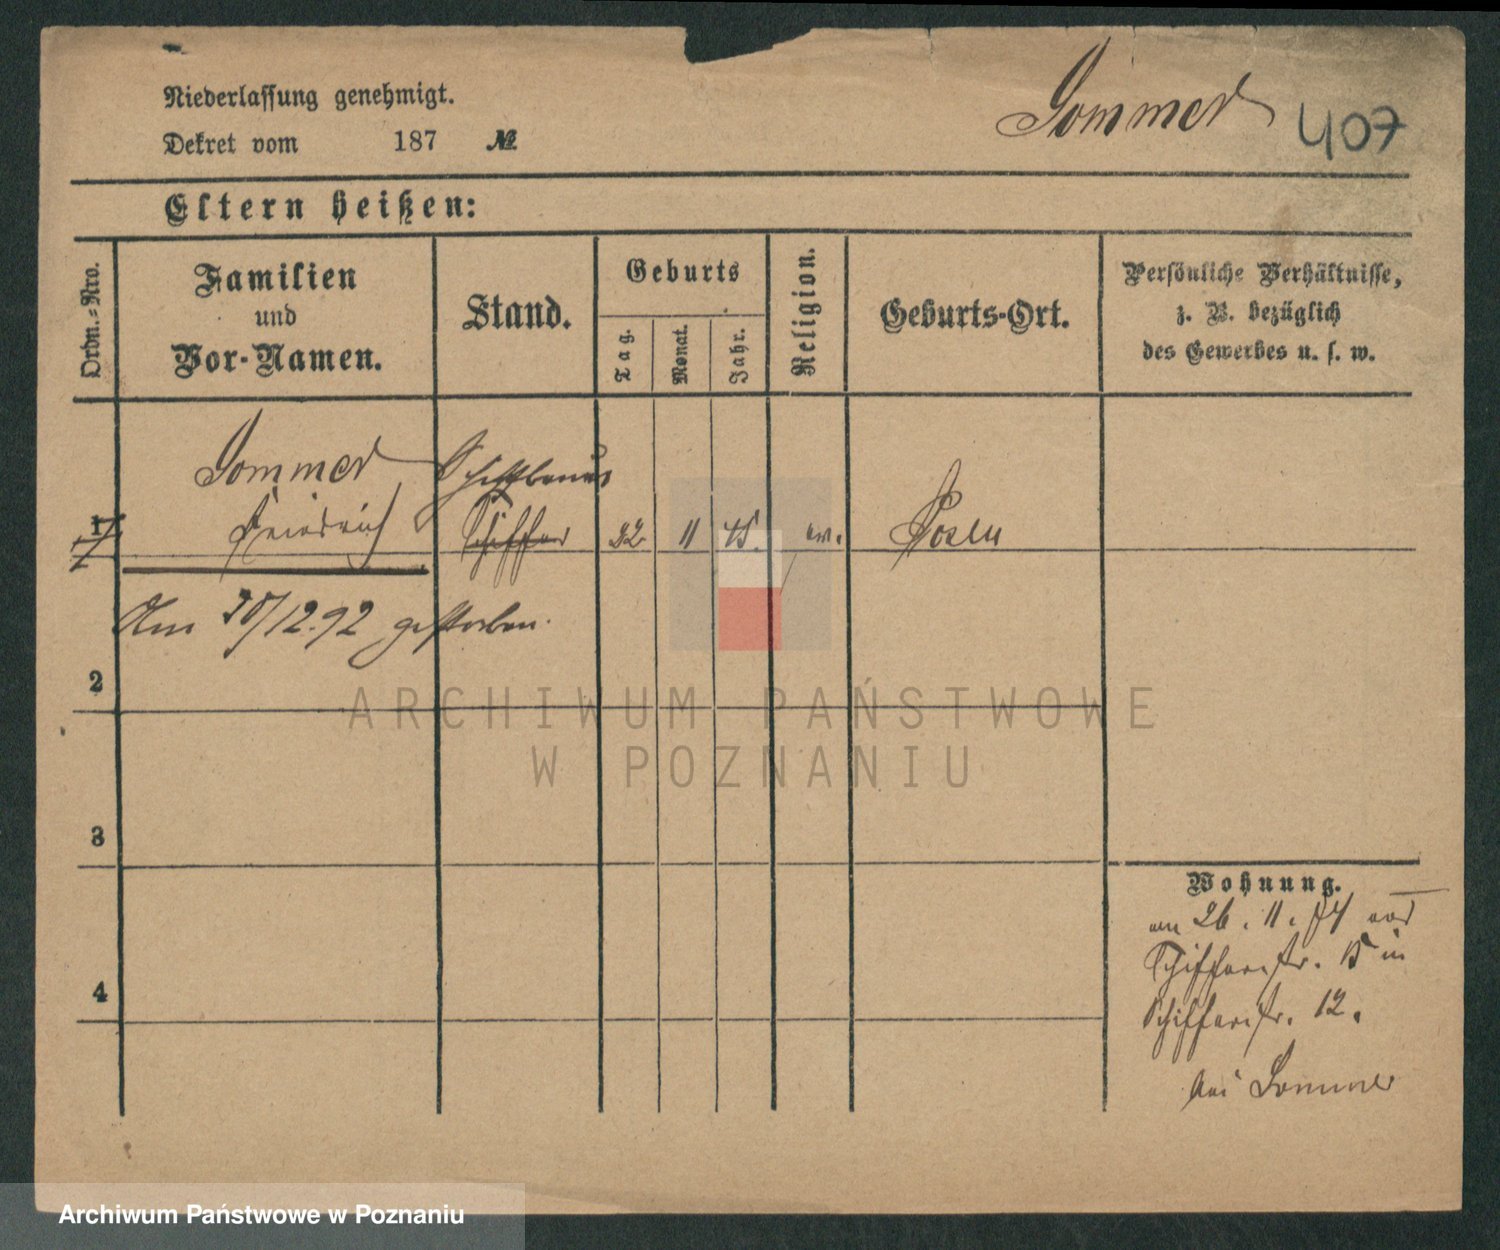 Niederlassung genehmigt.
Dekret vom 187 №
Sommer 407
Eltern heißen:
Ordn.-Nro.
Familien
und
Vor-Namen.
Stand.
Geburts
Tag.
Monat.
Jahr.
Religion.
Geburts-Ort.
Persönliche Verhältnisse,
z. B. bezüglich
des Gewerbes u. s. w.
Sommer
1 Friedrich Schiffer 22 11 ev. Posen
Am 12.92 gestorben.
2
3
4
Wohnung.
am 26. 11. 74 von
Schifferstr. 15 in
Schifferstr. 12.
bei Sommer
ARCHIWUM PAŃSTWOWE
W POZNANIU
Archiwum Państwowe w Poznaniu